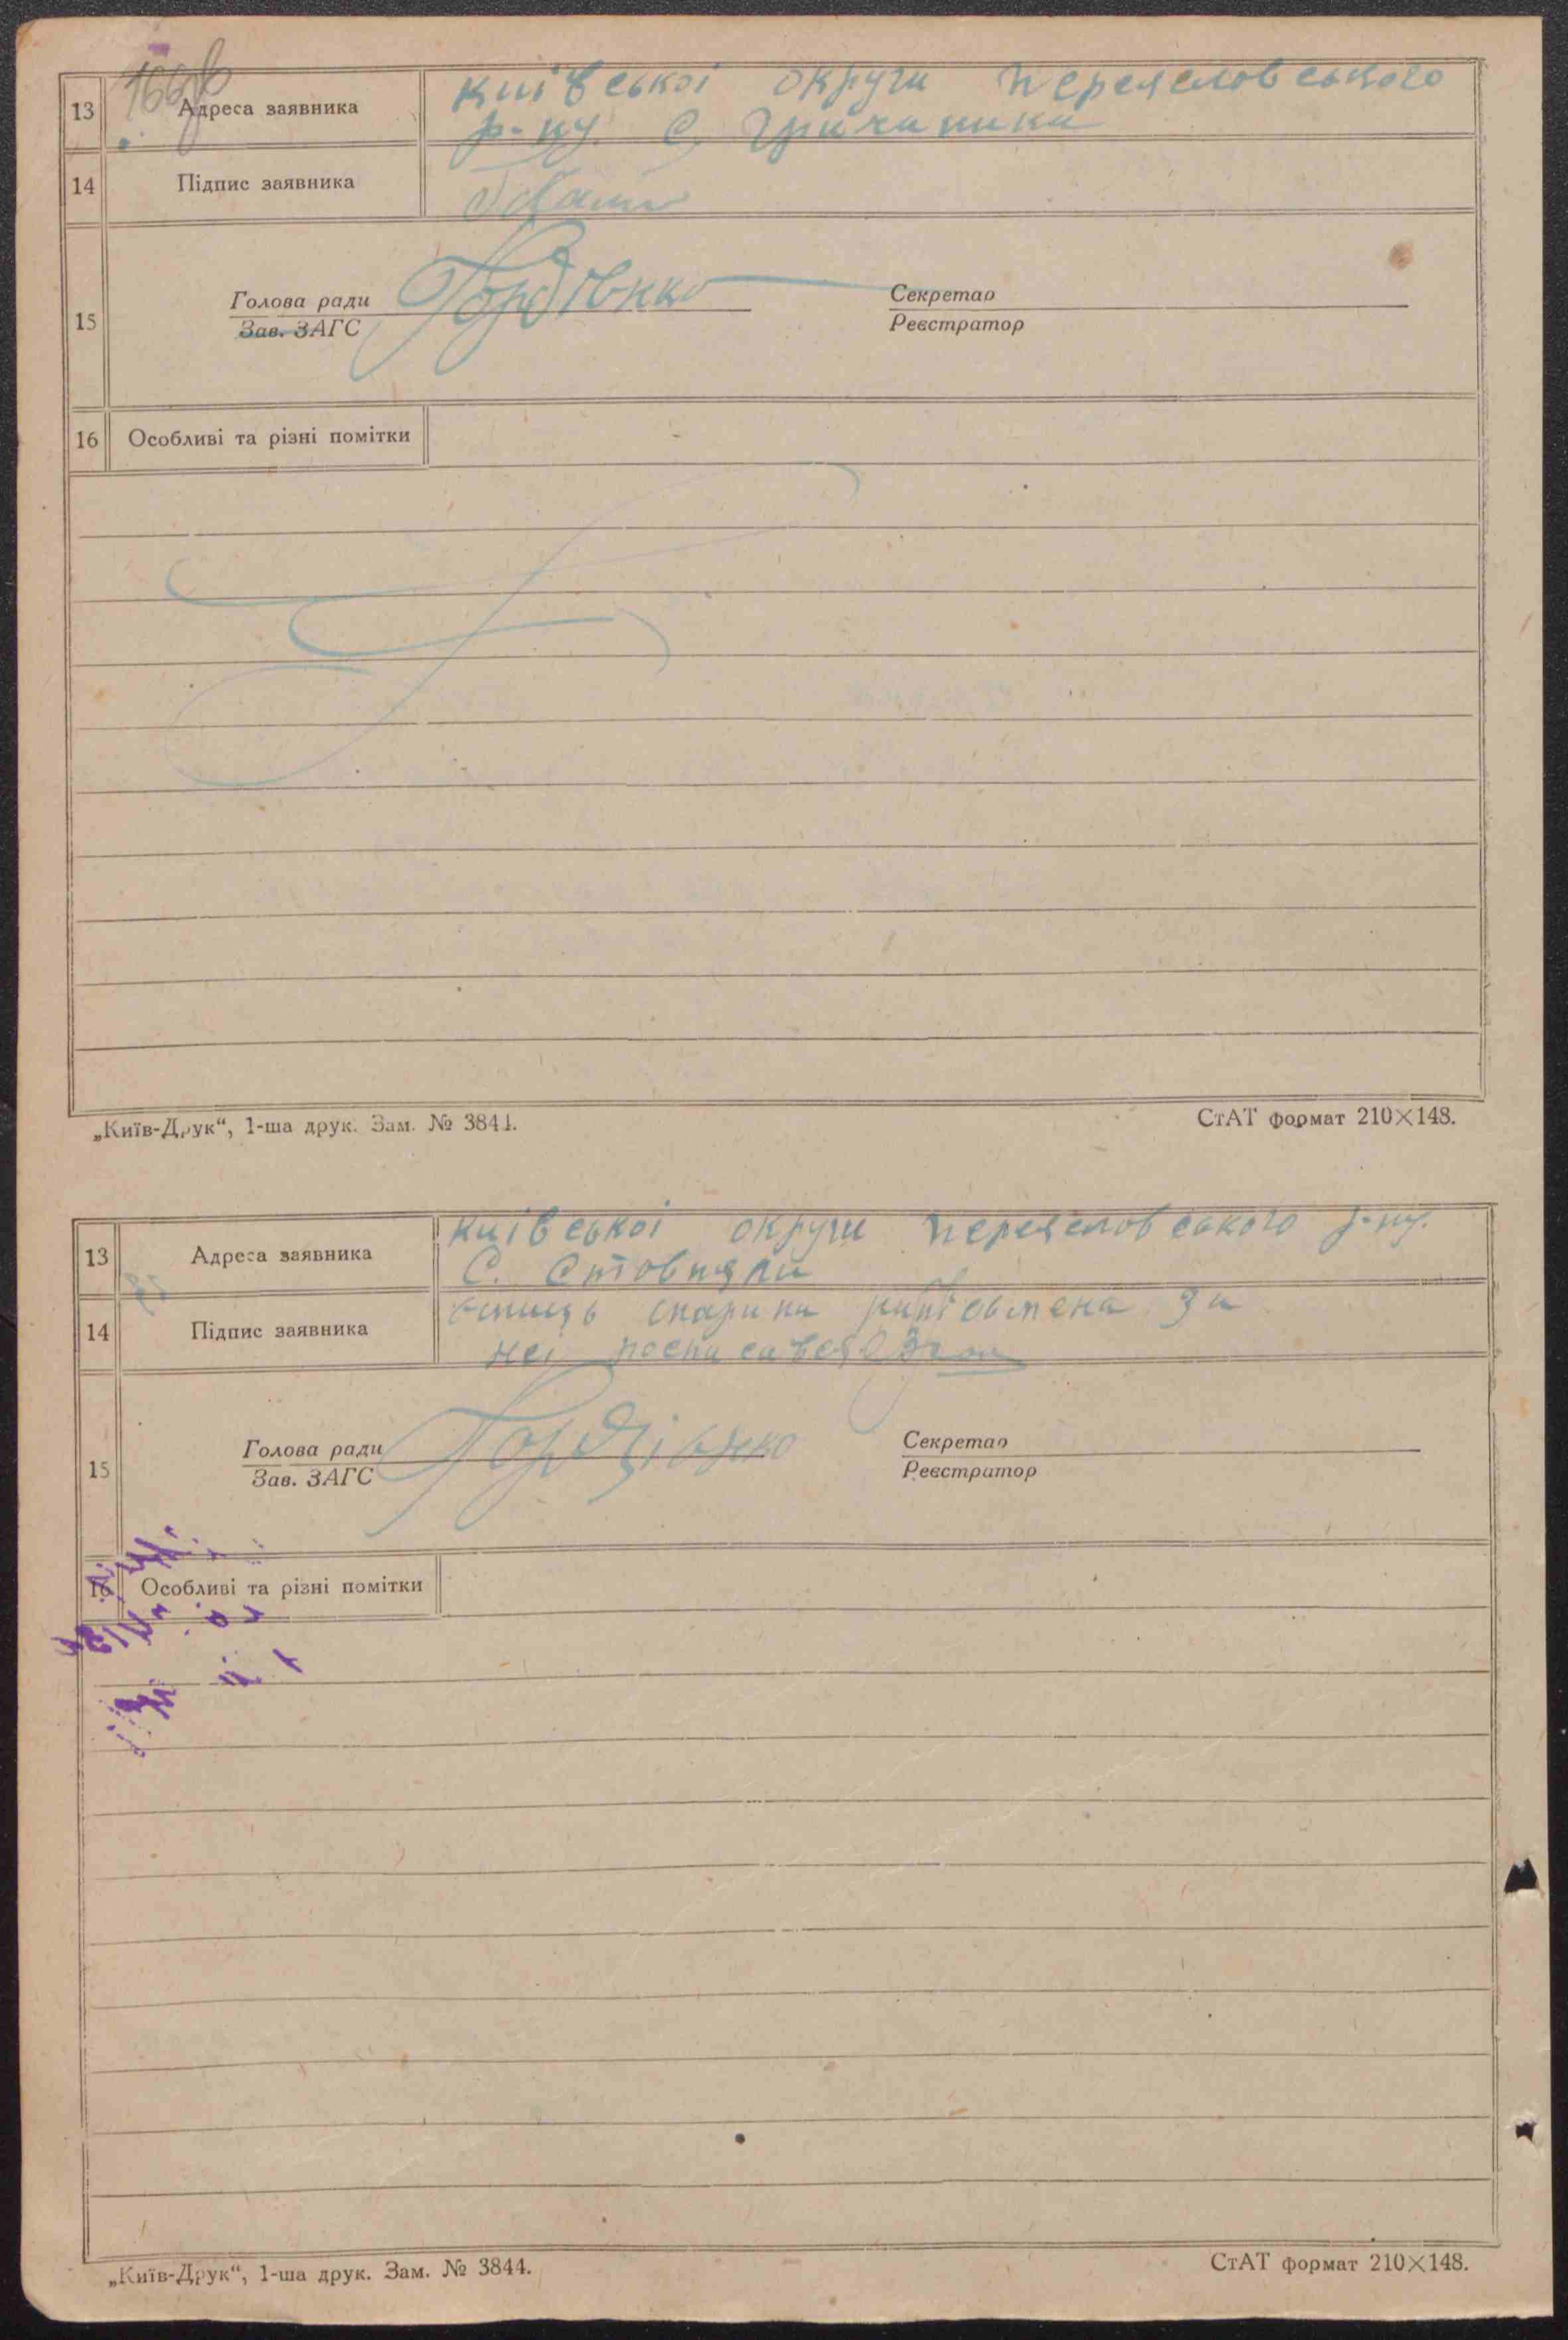 13 Адреса заявника
Київської округи Переяславського
р-ну. С.
14 Підпис заявника
Голова ради Гордієнко Секретар
15
Зав. ЗАГС Реєстратор
16 Особливі та різні помітки
„Київ-Друк“, 1-ша друк. Зам. № 3844. СтАТ формат 210×148.
13 Адреса заявника
Київської округи Переяславського р-ну.
С. Стовпяги
14 Підпис заявника
за
неї росписався
Голова ради Гордієнко Секретар
15
Зав. ЗАГС Реєстратор
16 Особливі та різні помітки
„Київ-Друк“, 1-ша друк. Зам. № 3844. СтАТ формат 210×148.